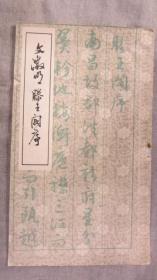 文徵明 滕王阁序
滕王阁序
南昌故郡洪都新府星分
翼轸地接衡庐襟三江而